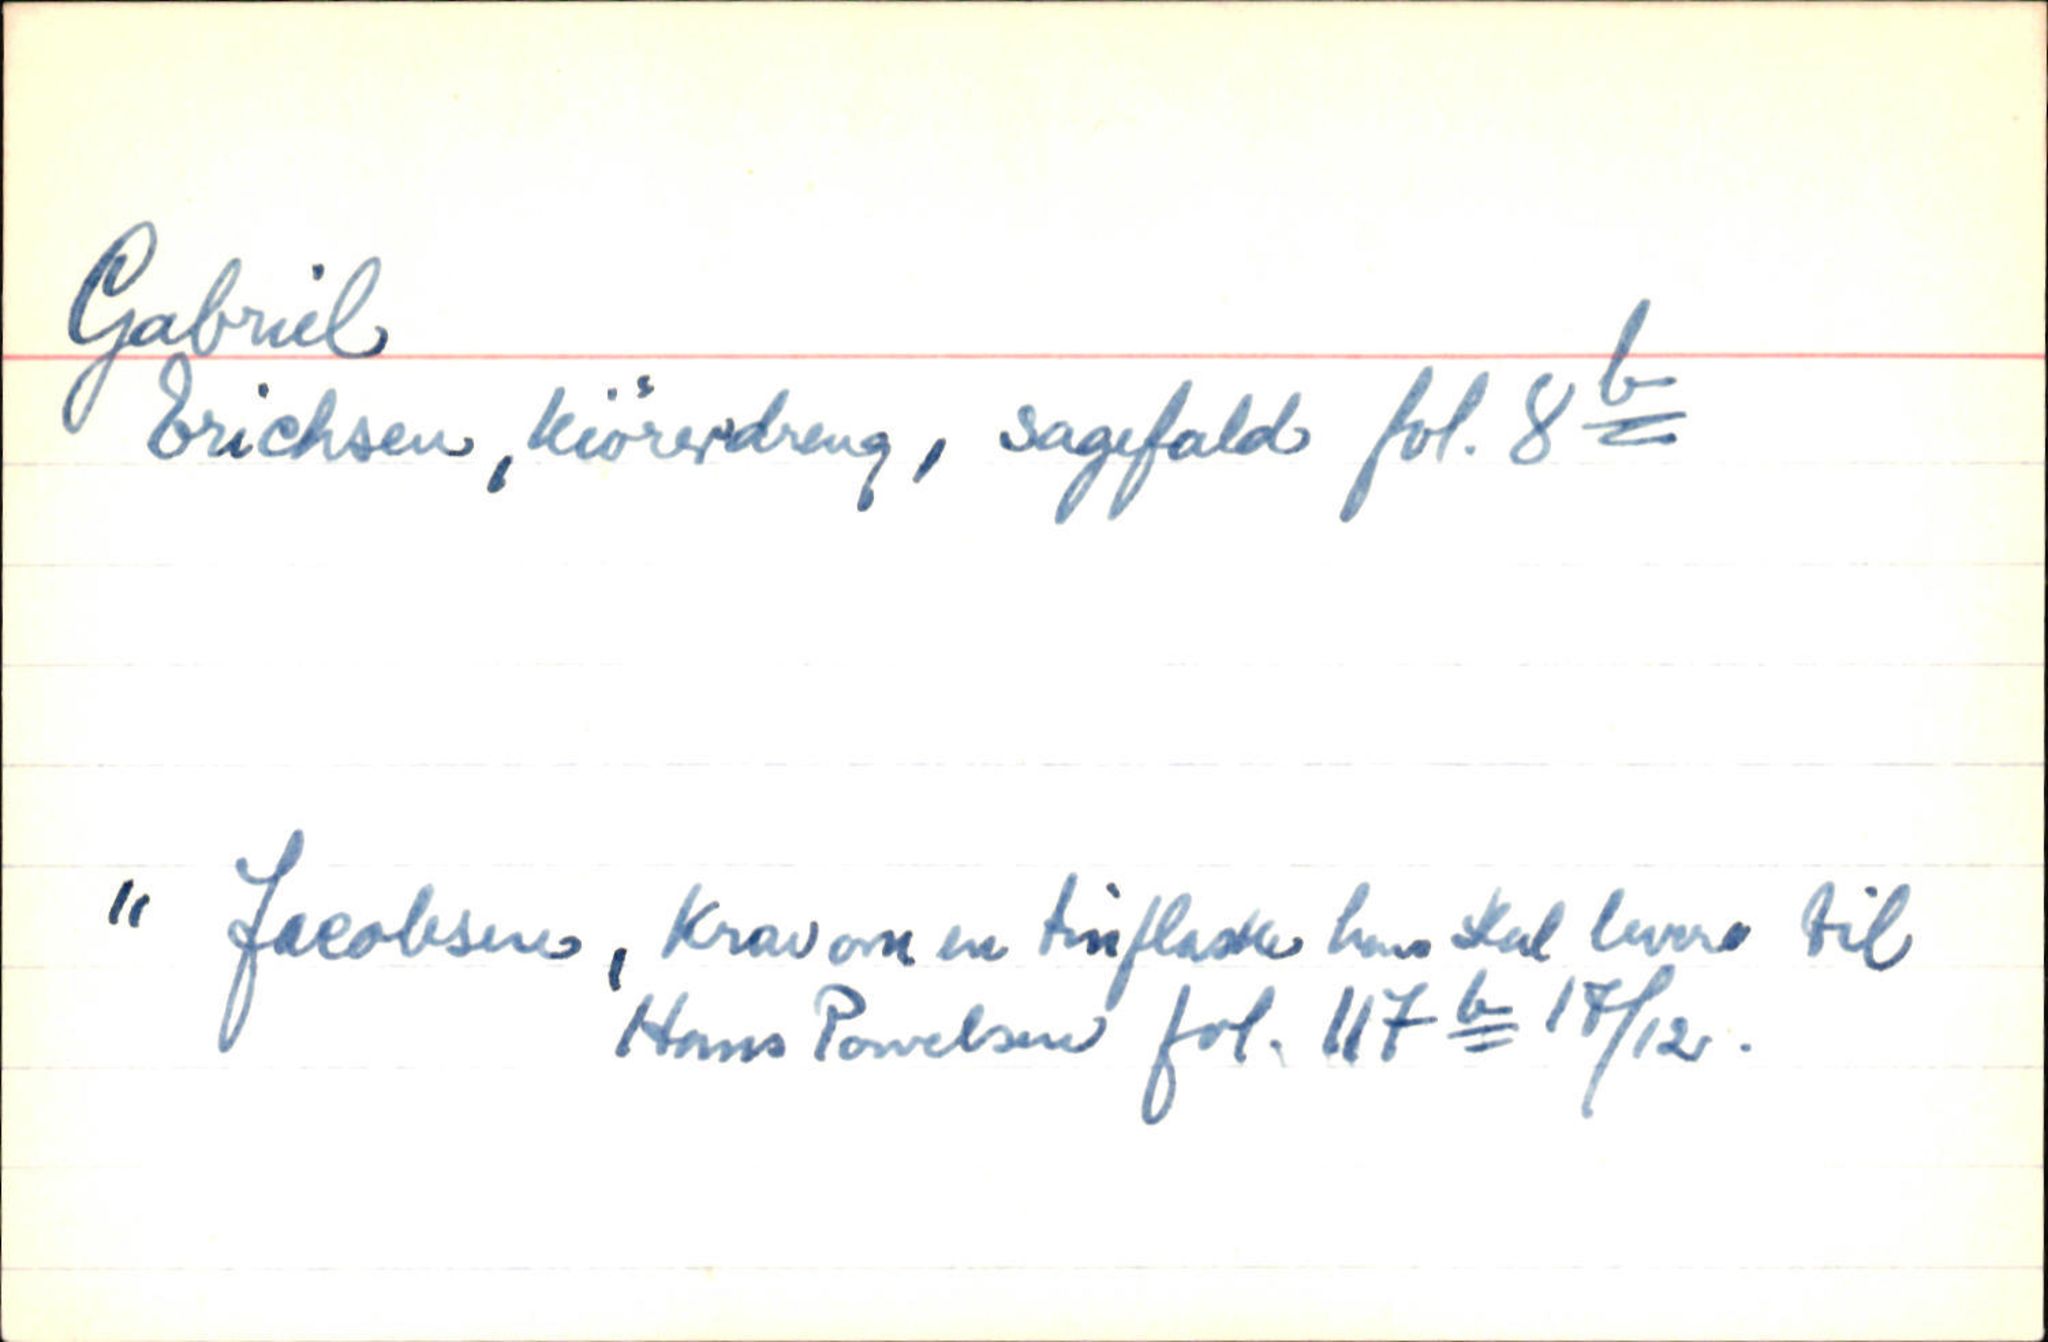 Gabriel
Erichsen, kiörerdreng, sagefald fol. 8 b
" Jacobsen, krav om en tinflaske han skal levere til
Hans Powelsen fol. 117 b 17/12.